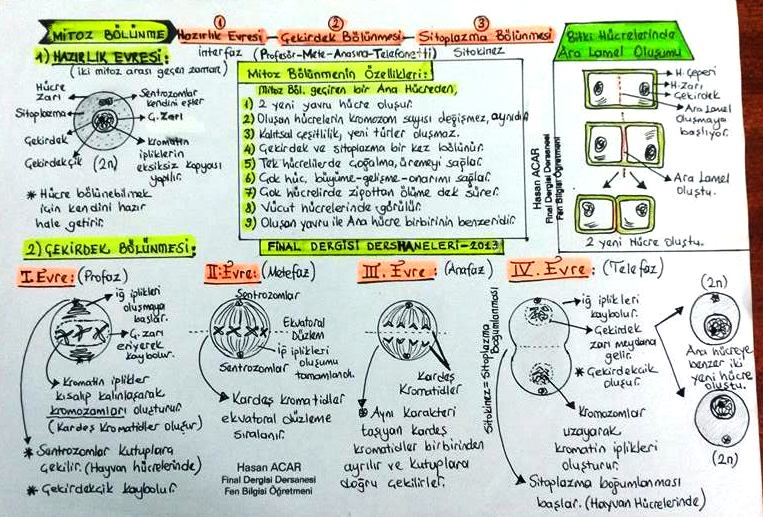 MİTOZ BÖLÜNME
① ② ③
Hazırlık Evresi – Çekirdek Bölünmesi – Sitoplazma Bölünmesi
interfaz (Profesör-Mete-Anasına-Telefonetti) Sitokinez
1) HAZIRLIK EVRESİ:
(iki mitoz arası geçen zaman)
Hücre Zarı
Sitoplazma
Çekirdek
Çekirdekçik
(2n)
Sentrozomlar kendini eşler
Ç. Zarı
Kromatin ipliklerin eksiksiz kopyası yapılır.
* Hücre bölünebilmek
için kendini hazır
hale getirir.
Mitoz Bölünmenin Özellikleri:
Mitoz Böl. geçiren bir Ana Hücreden,
1) 2 yeni yavru hücre oluşur.
2) Oluşan hücrelerin kromozom sayısı değişmez, aynıdır
3) Kalıtsal çeşitlilik, yeni türler oluşmaz.
4) Çekirdek ve sitoplazma bir kez bölünür.
5) Tek hücrelilerde çoğalma, üremeyi sağlar.
6) Çok hüc. büyüme-gelişme-onarımı sağlar.
7) Çok hücrelirde zigottan ölüme dek sürer.
8) Vücut hücrelerinde görülür.
9) Oluşan yavru ile Ana hücre birbirinin benzeridir.
Hasan ACAR
Final Dergisi Dersanesi
Fen Bilgisi Öğretmeni
Bitki Hücrelerinde
Ara Lamel Oluşumu
H. Çeperi
H. Zarı
Çekirdek
Ara Lamel
oluşmaya
başlıyor.
Ara Lamel
Oluştu.
2 yeni Hücre Oluştu.
FİNAL DERGİSİ DERSHANELERİ-2013
2) ÇEKİRDEK BÖLÜNMESİ:
I. Evre: (Profaz)
iğ iplikleri
oluşmaya
başlar.
Ç. zarı
eriyerek
kaybolur.
Kromatin iplikler
kısalıp kalınlaşarak
kromozomları oluşturur.
(Kardeş Kromatidler oluşur)
* Sentrozomlar Kutuplara
Çekilir. (Hayvan hücrelerinde)
* Çekirdekçik kaybolur.
II. Evre: (Metefaz)
Sentrozomlar
Ekvatoral
Düzlem
iğ iplikleri
oluşumu
tamamlandı.
Sentrozomlar
Kardeş kromatidler
ekvatoral düzleme
sıralanır.
Hasan ACAR
Final Dergisi Dersanesi
Fen Bilgisi Öğretmeni
III. Evre: (Anafaz)
Kardeş
Kromatidler
Aynı Karakteri
taşıyan kardeş
kromatidler birbirinden
ayrılır ve kutuplara
doğru çekilirler.
IV. Evre: (Telefaz)
Sitokinez = Sitoplazma
Boğumlanması
iğ iplikleri
kaybolur.
Çekirdek
zarı meydana
gelir.
* Çekirdekcik
oluşur.
Kromozomlar
uzayarak
kromatin iplikleri
oluşturur.
Sitoplazma boğumlanması
başlar. (Hayvan Hücrelerinde)
(2n)
Ana hücreye
benzer iki
yeni hücre
oluştu.
(2n)